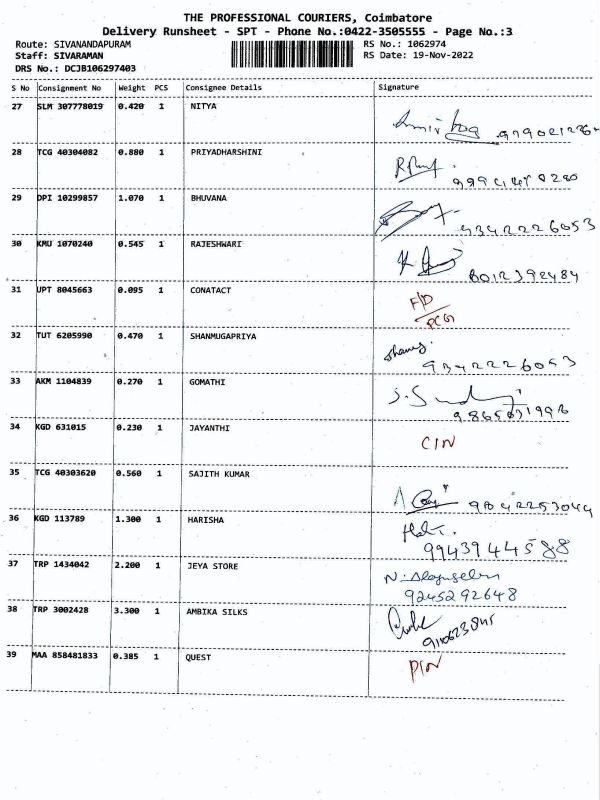 THE PROFESSIONAL COURIERS, Coimbatore
Delivery Runsheet - SPT - Phone No.:0422-3505555 - Page No.:3
Route: SIVANANDAPURAM RS No.: 1062974
Staff: SIVARAMAN RS Date: 19-Nov-2022
DRS No.: DCJB106297403
S No Consignment No Weight PCS Consignee Details Signature
27 SLM 307778019 0.420 1 NITYA
28 TCG 40304082 0.880 1 PRIYADHARSHINI
29 DPI 10299857 1.070 1 BHUVANA
9342226053
30 KMU 1070240 0.545 1 RAJESHWARI
8012392484
31 UPT 8045663 0.095 1 CONATACT
F/D
32 TUT 6205990 0.470 1 SHANMUGAPRIYA
9342226053
33 AKM 1104839 0.270 1 GOMATHI
34 KGD 631015 0.230 1 JAYANTHI
CIN
35 TCG 40303620 0.560 1 SAJITH KUMAR
36 KGD 113789 1.300 1 HARISHA
9943944588
37 TRP 1434042 2.200 1 JEYA STORE
9245292648
38 TRP 3002428 3.300 1 AMBIKA SILKS
39 MAA 858481833 0.385 1 QUEST
PIN